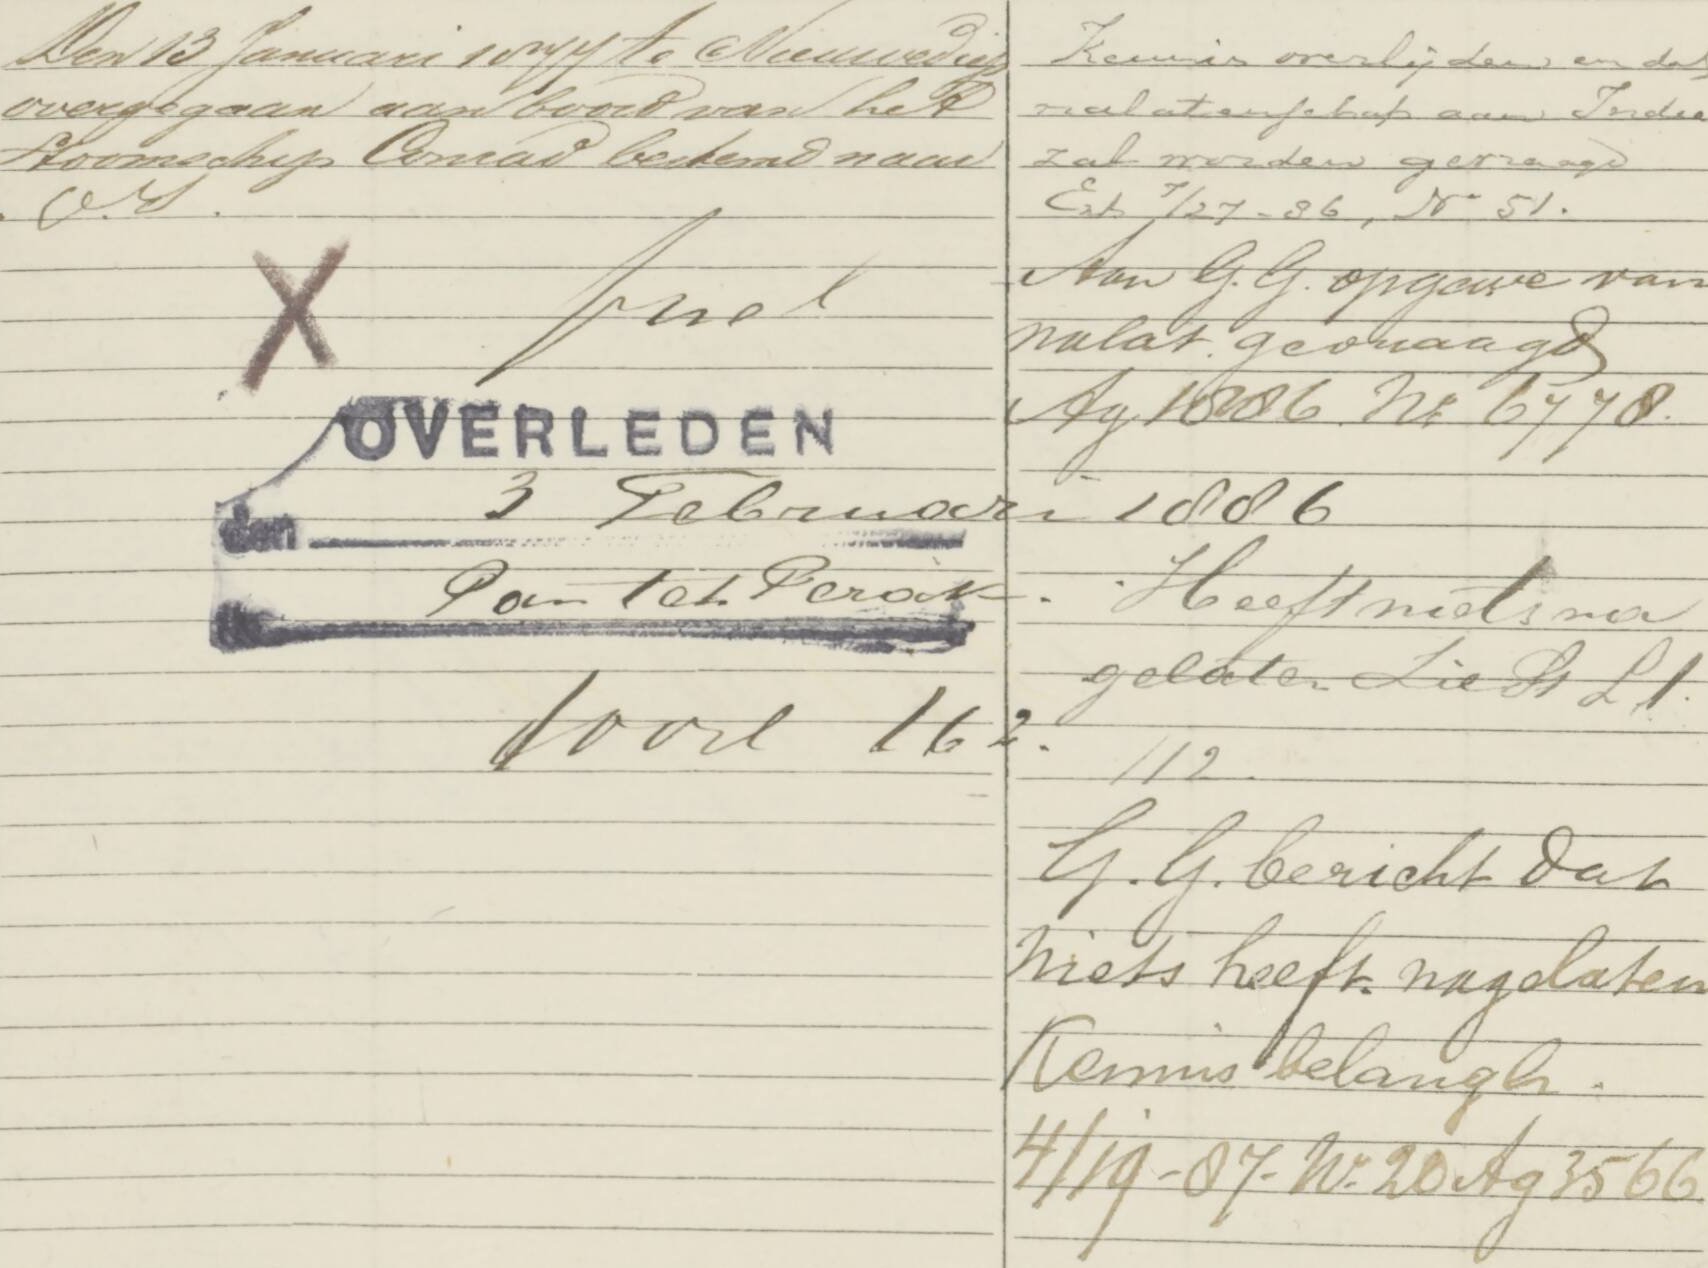 Den 13 Januari 1877 te Nieuwediep
overgegaan aan boord van het
Stoomschip Conrad bestemd naar
O.I.
X
OVERLEDEN
den 3 Februari 1886
Panteh Perak.
162.
Kennis overlijden en dat
nalatenschap aan Indie
zal worden gevraagd
Exh 7/27-86, No 51.
Aan G.G. opgave van
nalat. gevraagd
Ag 1886. No 6778.
Heeft niets na
gelaten Lie St L1.
112.
G.G. bericht dat
niets heeft nagelaten
Kennis belanghr.
4/19-87- No 20 Ag 3566.